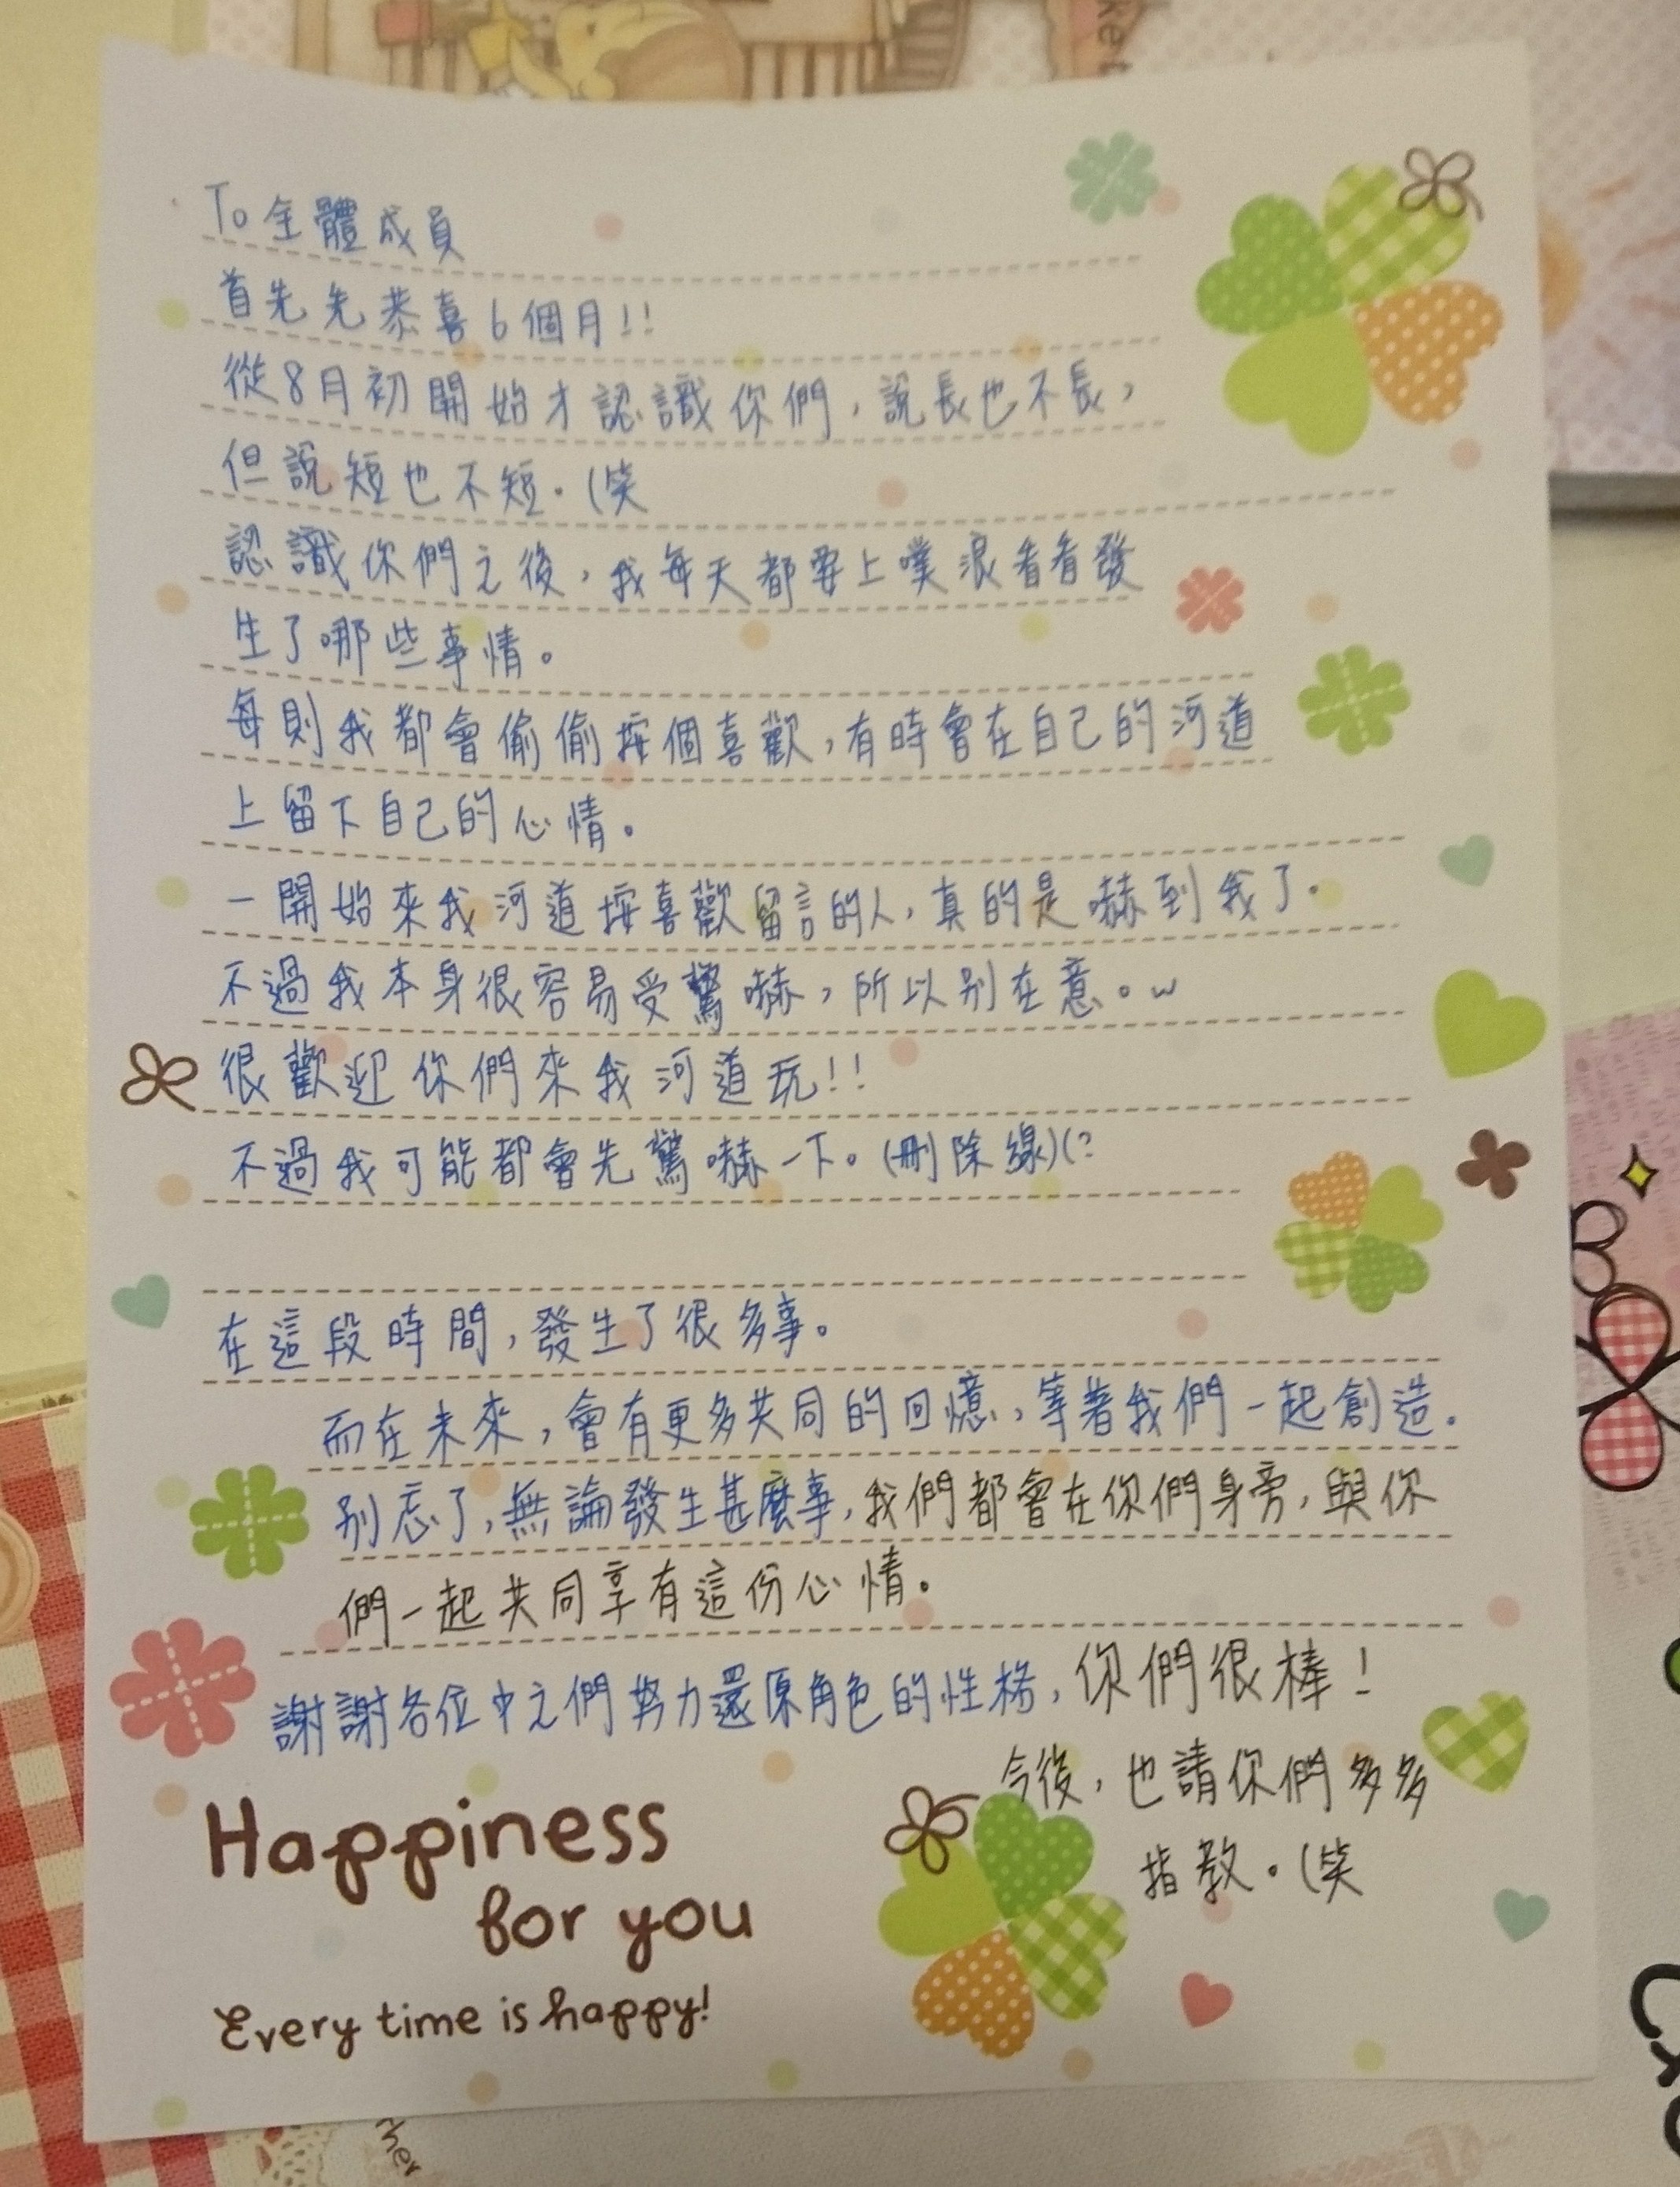 To 全體成員
首先先恭喜6個月!!
從8月初開始才認識你們，說長也不長，
但說短也不短。(笑
認識你們之後，我每天都要上噗浪看看發
生了哪些事情。
每則我都會偷偷按個喜歡，有時會在自己的河道
上留下自己的心情。
一開始來我河道按喜歡留言的人，真的是嚇到我了。
不過我本身很容易受驚嚇，所以別在意。w
很歡迎你們來我河道玩!!
不過我可能都會先驚嚇一下。(刪除線)(?
在這段時間，發生了很多事。
而在未來，會有更多共同的回憶，等著我們一起創造。
別忘了，無論發生甚麼事，我們都會在你們身旁，與你
們一起共同享有這份心情。
謝謝各位中之們努力還原角色的性格，你們很棒！
今後，也請你們多多
指教。(笑
Happiness
for you
Every time is happy!
ket
ther